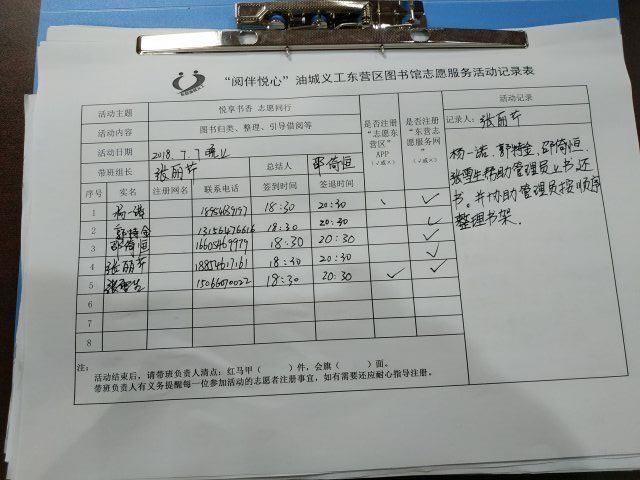 “阅伴悦心”油城义工东营区图书馆志愿服务活动记录表
活动主题 悦享书香 志愿同行
活动内容 图书归类、整理、引导借阅等
活动日期 2018.7.7 晚上
带班组长 张丽芹 总结人 邵倚恒
是否注册“志愿东营区”APP（√或×）
是否注册“东营志愿服务网”（√或×）
活动记录
记录人：张丽芹
杨一诺、郭特金、邵倚恒、
张雪生帮助管理员上书还
书。并协助管理员按顺序
整理书架.
序号 实名 注册网名 联系电话 签到时间 签退时间
1 杨一诺 18:30 20:30 ✓ ✓
2 郭特金 13156476616 18:30 20:30 ✓
3 邵倚恒 16605469979 18:30 20:30 ✓
4 张丽芹 18854617161 18:30 20:30 ✓
5 张雪生 15066070022 18:30 20:30 ✓ ✓
6
7
8
注：
活动结束后，请带班负责人清点：红马甲（ ）件，会旗（ ）面。
带班负责人有义务提醒每一位参加活动的志愿者注册事宜，如有需要还应耐心指导注册。